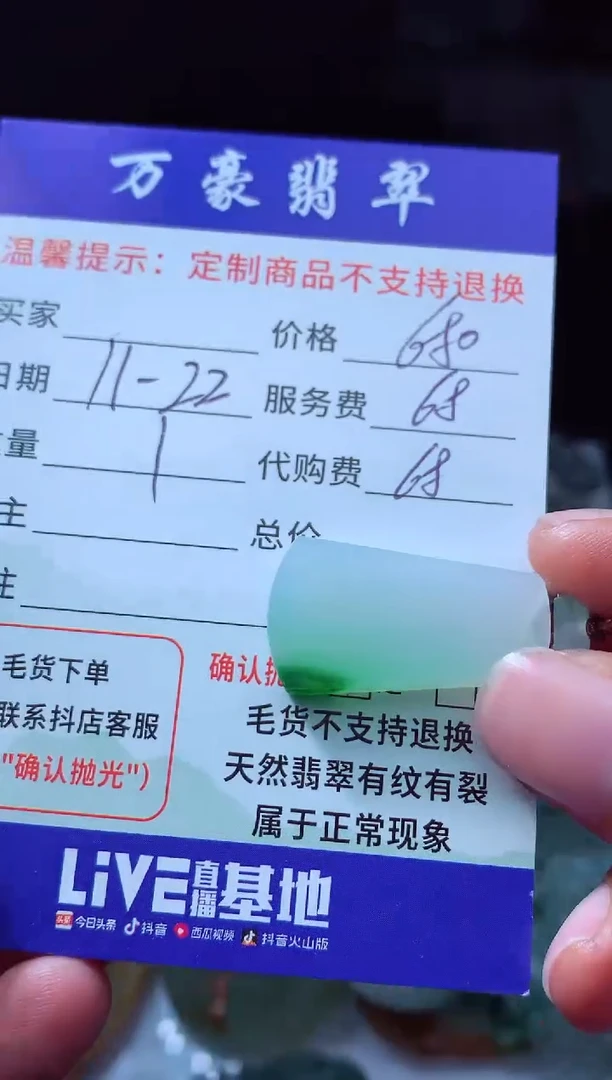 万豪翡翠
温馨提示：定制商品不支持退换
买家 价格 680
日期 11-22 服务费 68
量 1 代购费 68
主 总价
注
毛货下单 确认抛
联系抖店客服 毛货不支持退换
"确认抛光") 天然翡翠有纹有裂
属于正常现象
LiVE直播基地
头条 今日头条 抖音 西瓜视频 抖音火山版